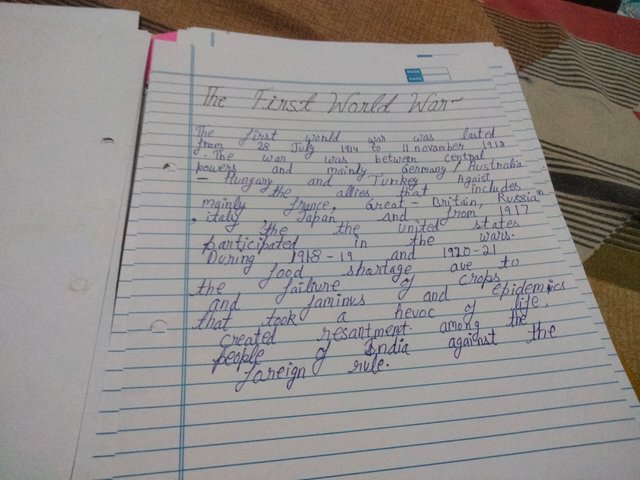 PAGE
DATE
The First World War
The first world war was lasted
from 28 July 1914 to 11 november 1918
. The war was between central
powers and mainly Germany / Australia
- Hungary and Turkey Agaist
the allies that includes
mainly france, Great - Britain, Russia
, italy, Japan and from 1917
the the united states
participated in the wars.
During 1918 - 19 and 1920 - 21
food shortage aue to
the failure of crops
and faminus and epidemics
that took a hevoc of life,
created resantment among the
people of India against the
foreign rule.